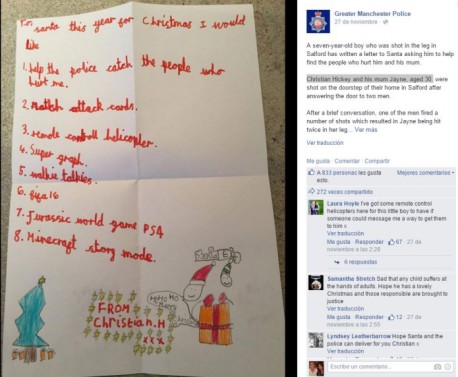 santa this year for Christmas I would
like
1. help the police catch the people who
hurt me.
2. Match attack cards.
3. remote controll helicopter.
4. Super graph.
5. walkie talkies.
6. fifa 16
7. Jurassic world game PS4
8. Minecraft story mode.
HoHoHo
FROM
Christian.H
xxx
Greater Manchester Police
27 de noviembre
A seven-year-old boy who was shot in the leg in
Salford has written a letter to Santa asking him to help
find the people who hurt him and his mum.
Christian Hickey and his mum Jayne, aged 30, were
shot on the doorstep of their home in Salford after
answering the door to two men.
After a brief conversation, one of the men fired a
number of shots which resulted in Jayne being hit
twice in her leg... Ver más
Ver traducción
Me gusta · Comentar · Compartir
A 833 personas les gusta
esto.
Mejores comentarios
272 veces compartido
Laura Hoyle I've got some remote control
helicopters here for this little boy to have if
someone could message me a way to get
them to him x
Ver traducción
Me gusta · Responder · 67 · 27 de
noviembre a las 2:28
6 respuestas
Samantha Stretch Sad that any child suffers at
the hands of adults. Hope he has a lovely
Christmas and those responsible are brought to
justice
Ver traducción
Me gusta · Responder · 12 · 27 de
noviembre a las 2:55
Lyndsey Leatherbarrow Hope Santa and the
police can deliver for you Christian x
Escribe un comentario...